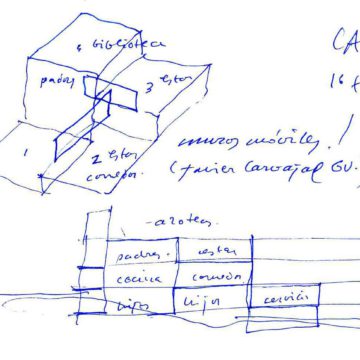 CA
4 biblioteca
padres
3 estar
16
1
2 estar
comedor
muros móviles!
(Javier Carvajal GV.
-azotea
padres estar
cocina comedor
hijos hijos servicio